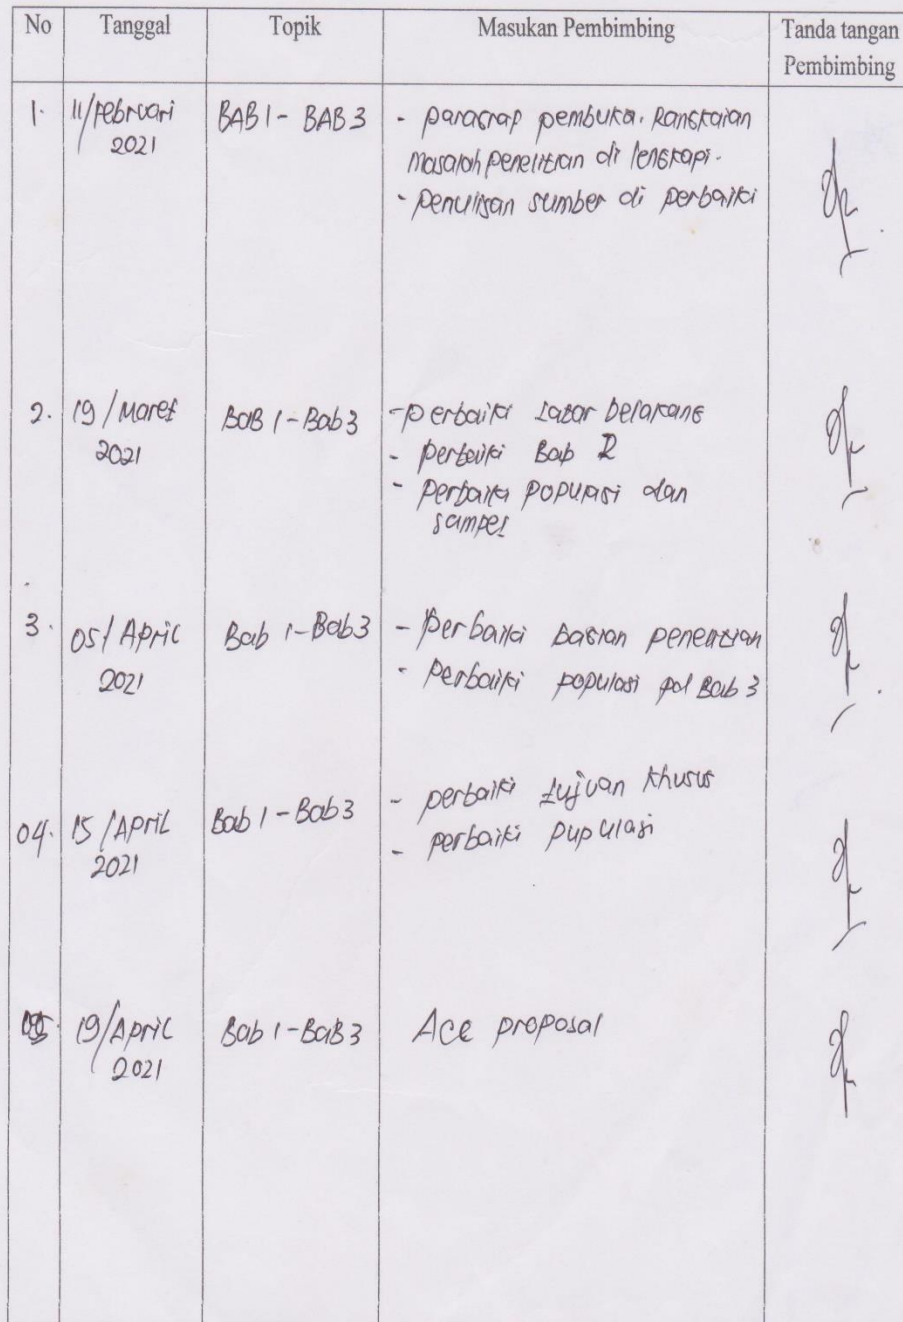 No Tanggal Topik Masukan Pembimbing Tanda tangan
Pembimbing
1. 11/Februari BAB 1 - BAB 3 - paragrap pembuka. Rangkaian
2021 masalah penelitian di lengkapi.
- penulisan sumber di perbaiki
2. 19/Maret BAB 1 - Bab 3 - perbaiki Latar belakang
2021 - perbaiki Bab 2
- perbaiki populasi dan
sampel
3. 05/April Bab 1 - Bab 3 - Perbaiki bagian penelitian
2021 - Perbaiki populasi pd Bab 3
04. 15/April Bab 1 - Bab 3 - perbaiki tujuan khusus
2021 - perbaiki pupulasi
05. 19/April Bab 1 - BaB 3 Acc proposal
2021